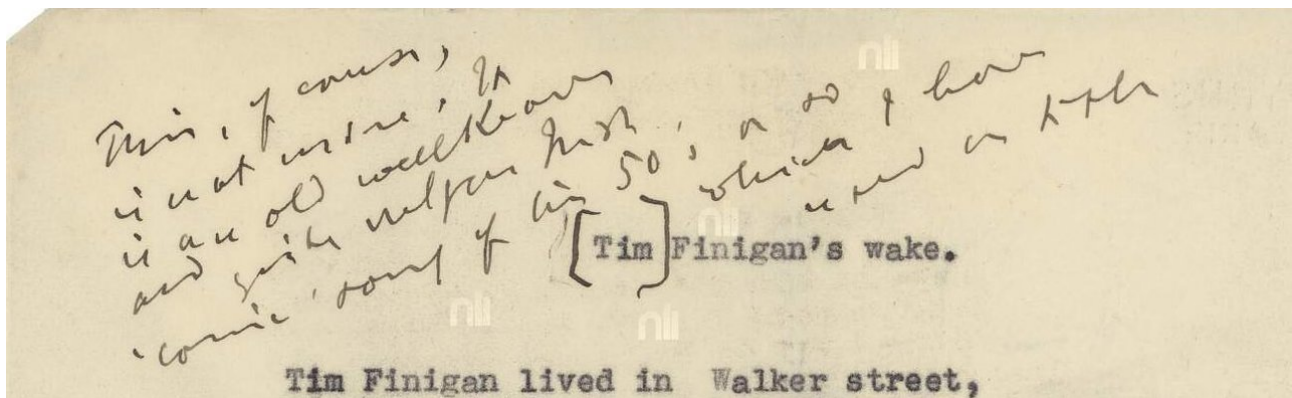 This, of course,
is not mine, It
is an old wellknown
and quite vulgar Irish
'comic' song of the 50s or so which I have
used as title
[Tim] Finigan's wake.
Tim Finigan lived in Walker street,